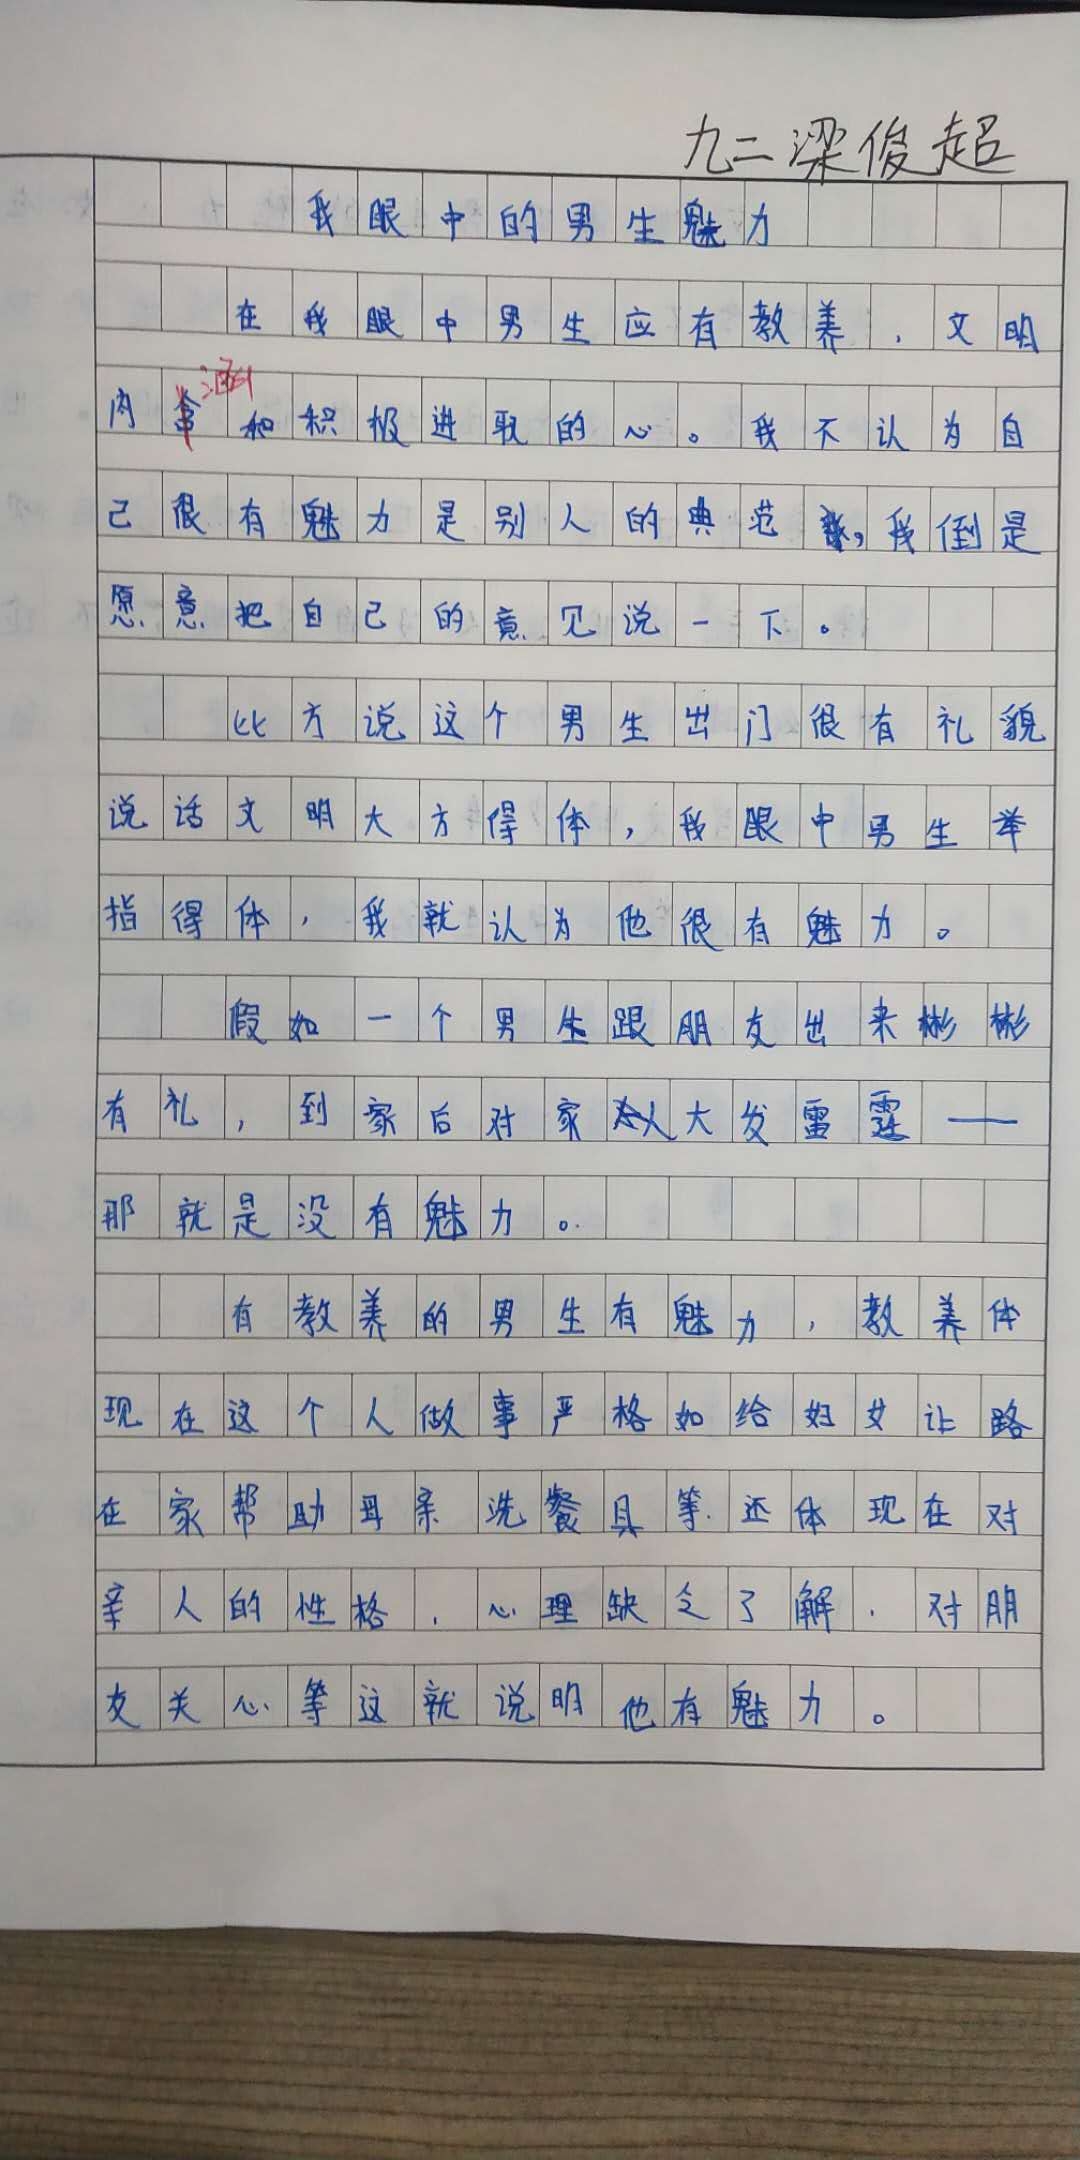 九二梁俊超
我眼中的男生魅力
在我眼中男生应有教养，文明
内涵和积极进取的心。我不认为自
己很有魅力是别人的典范，我倒是
愿意把自己的意见说一下。
比方说这个男生出门很有礼貌
说话文明大方得体，我眼中男生举
指得体，我就认为他很有魅力。
假如一个男生跟朋友出来彬彬
有礼，到家后对家人大发雷霆——
那就是没有魅力。
有教养的男生有魅力，教养体
现在这个人做事严格如给妇女让路
在家帮助母亲洗餐具等.还体现在对
亲人的性格，心理缺乏了解，对朋
友关心等这就说明他有魅力。